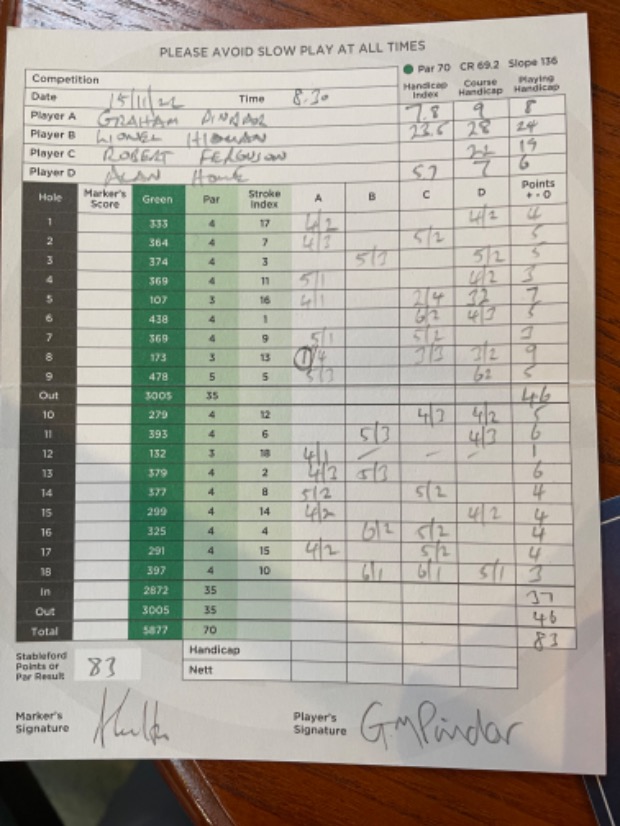 PLEASE AVOID SLOW PLAY AT ALL TIMES
Par 70 CR 69.2 Slope 136
Competition Handicap Index Course Handicap Playing Handicap
Date 15/11/22 Time 8.30
Player A GRAHAM PINDAR 7.8 9 8
Player B LIONEL 23.6 28 24
Player C ROBERT FERGUSON 19
Player D ALAN 5.7 7 6
Hole Marker's Score Green Par Stroke Index A B C D Points + - 0
1 333 4 17 4/2 4/2 4
2 364 4 7 4/3 5/2 5
3 374 4 3 5/3 5/2 5
4 369 4 11 5/1 4/2 3
5 107 3 16 4/1 2/4 32 7
6 438 4 1 6/2 4/3 5
7 369 4 9 5/1 5/2 3
8 173 3 13 1/4 3/3 3/2 9
9 478 5 5 5/3 62 5
Out 3005 35 46
10 279 4 12 4/3 4/2 5
11 393 4 6 5/3 4/3 6
12 132 3 18 4/1 – – – 1
13 379 4 2 4/3 5/3 6
14 377 4 8 5/2 5/2 4
15 299 4 14 4/2 4/2 4
16 325 4 4 6/2 5/2 4
17 291 4 15 4/2 5/2 4
18 397 4 10 6/1 6/1 5/1 3
In 2872 35 37
Out 3005 35 46
Total 5877 70 83
Stableford Points or Par Result 83 Handicap
Nett
Marker's Signature
Player's Signature GMPindar